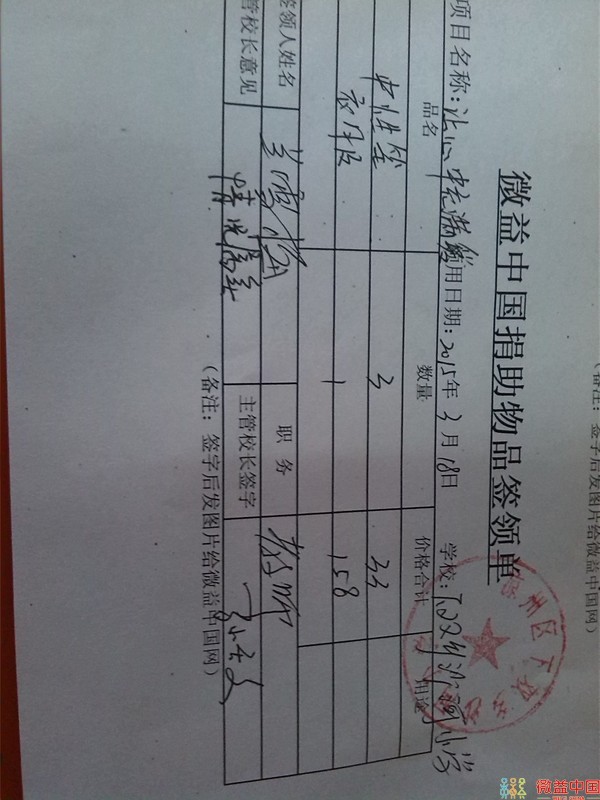 签字后发图片给微益中国网）
微益中国捐助物品签领单
项目名称：让心中充满 用日期：2015年3月18日 学校：下双乡沂河小学
品名 数量 价格合计 用途
中性笔 3 33
衣服 1 158
签领人姓名 职务 教师
管校长意见 情况属实 主管校长签字
（备注：签字后发图片给微益中国网）
州区下双
微益中国